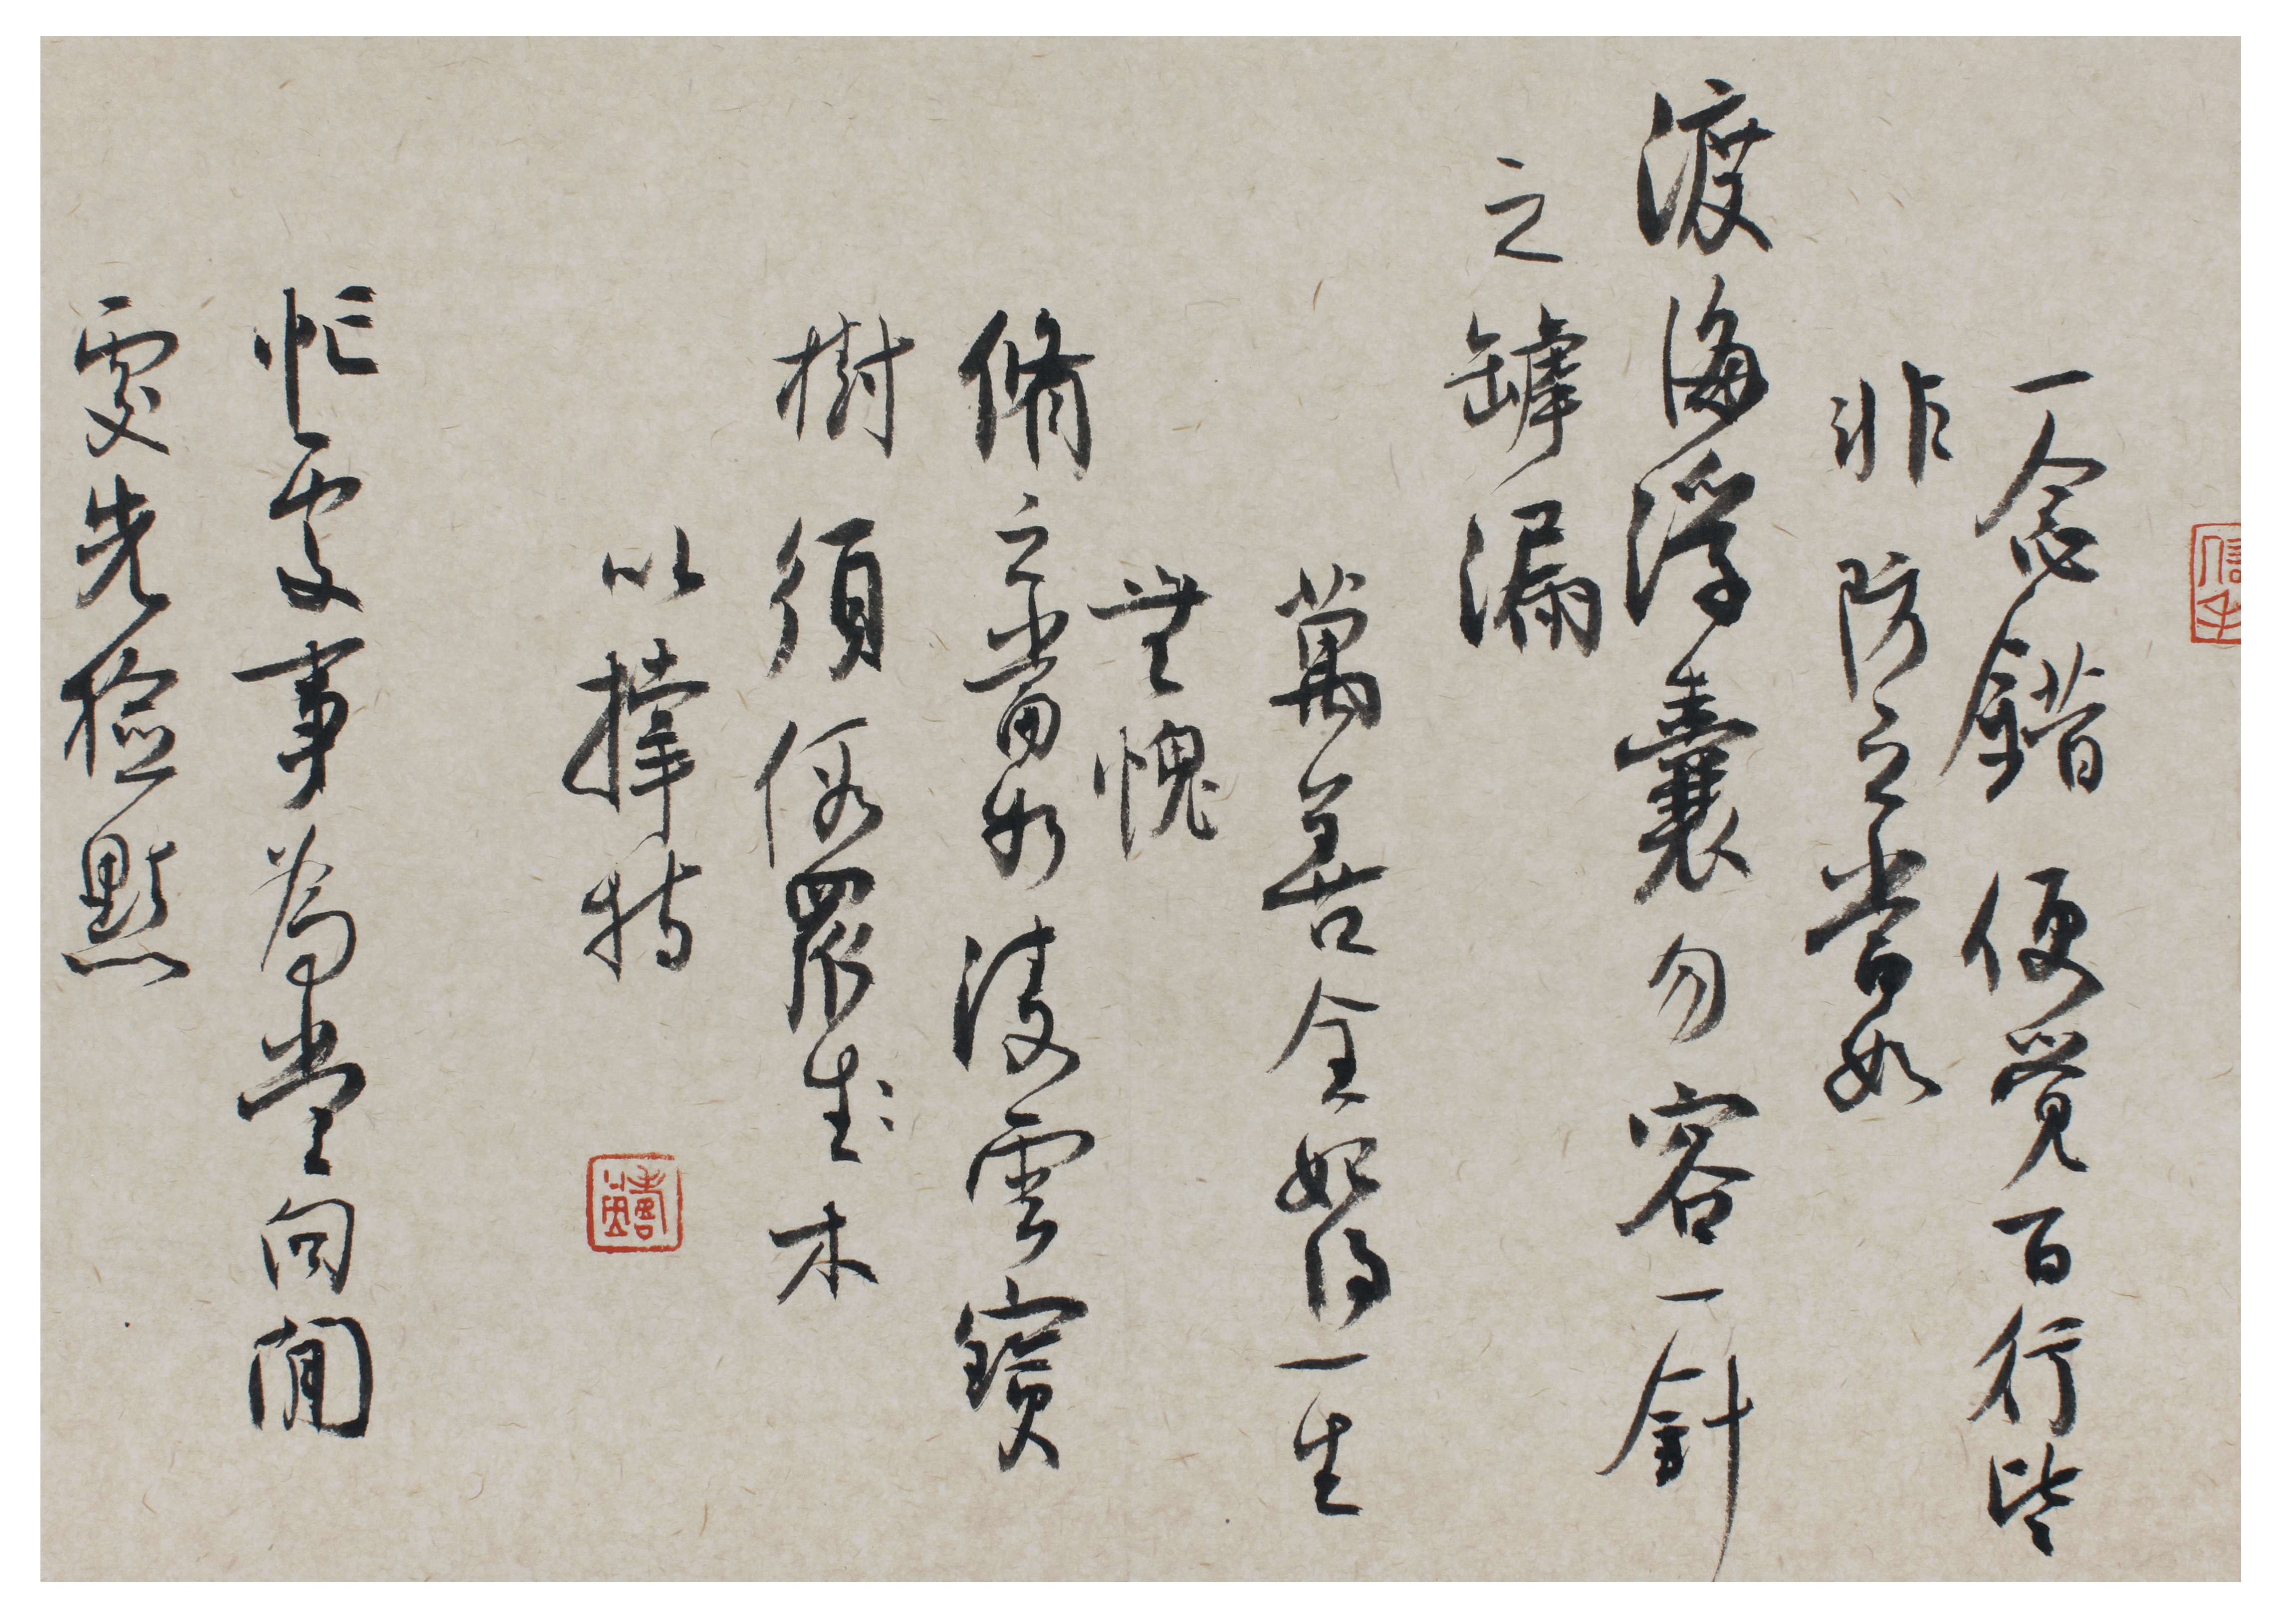 一念錯便覺百行皆
非防之當如
渡海浮囊勿容一針
之罅漏
萬善全始得一生
無愧
脩之當如凌雲寶
樹須假眾木
以撐持
忙處事為當向閒
處先檢點